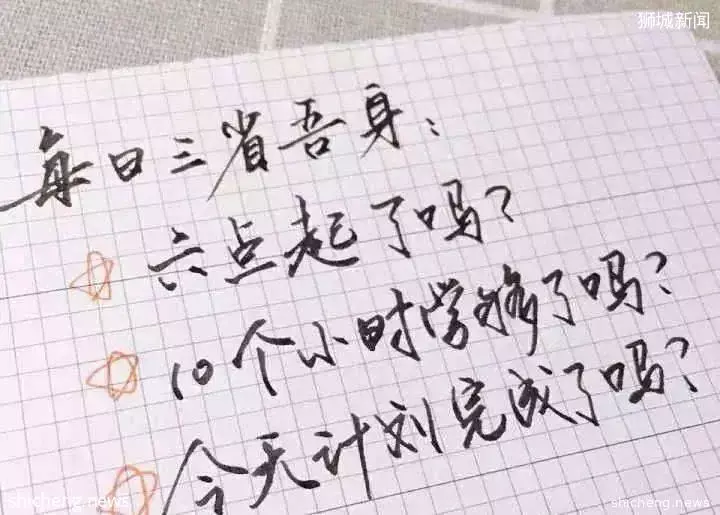 狮城新闻
每日三省吾身:
六点起了吗?
10个小时学够了吗?
今天计划完成了吗?
shicheng.news
shicheng.news